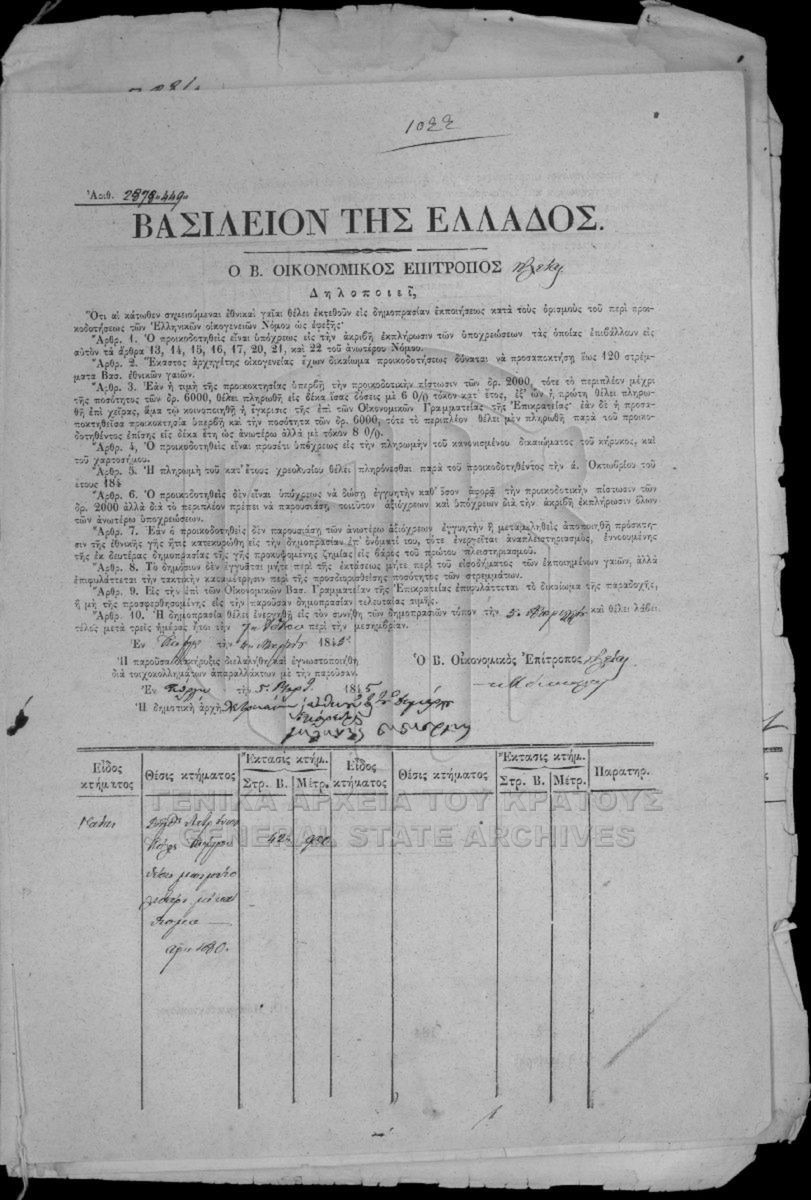 1022
Ἀριθ. 2878.449.
ΒΑΣΙΛΕΙΟΝ ΤΗΣ ΕΛΛΑΔΟΣ.
Ο Β. ΟΙΚΟΝΟΜΙΚΟΣ ΕΠΙΤΡΟΠΟΣ
Δηλοποιεῖ,
Ὅτι αἱ κάτωθεν σημειούμεναι ἐθνικαὶ γαῖαι θέλει ἐκτεθοῦν εἰς δημοπρασίαν ἐκποιήσεως κατὰ τοὺς ὁρισμοὺς τοῦ περὶ προι-
κοδοτήσεως τῶν Ἑλληνικῶν οἰκογενειῶν Νόμου ὡς ἐφεξῆς·
Ἄρθρ. 1. Ὁ προικοδοτηθεὶς εἶναι ὑπόχρεως εἰς τὴν ἀκριβῆ ἐκπλήρωσιν τῶν ὑποχρεώσεων τὰς ὁποίας ἐπιβάλλουν εἰς
αὐτὸν τὰ ἄρθρα 13, 14, 15, 16, 17, 20, 21, καὶ 22 τοῦ ἀνωτέρω Νόμου.
Ἄρθρ. 2. Ἕκαστος ἀρχηγέτης οἰκογενείας ἔχων δικαίωμα προικοδοτήσεως δύναται νὰ προσαποκτήσῃ ἕως 120 στρέμ-
ματα Βασ. ἐθνικῶν γαιῶν.
Ἄρθρ. 3. Ἐὰν ἡ τιμὴ τῆς προικοκτησίας ὑπερβῇ τὴν προικοδοτικὴν πίστωσιν τῶν δρ. 2000, τότε τὸ περιπλέον μέχρι
τῆς ποσότητος τῶν δρ. 6000, θέλει πληρωθῆ εἰς δέκα ἴσας δόσεις μὲ 6 0/0 τόκον κατ᾽ ἔτος, ἐξ᾽ ὧν ἡ πρώτη θέλει πληρω-
θῆ ἐπὶ χεῖρας, ἅμα τῷ κοινοποιηθῇ ἡ ἔγκρισις τῆς ἐπὶ τῶν Οἰκονομικῶν Γραμματείας τῆς Ἐπικρατείας· ἐὰν δὲ ἡ προσα-
ποκτηθεῖσα προικοκτησία ὑπερβῇ καὶ τὴν ποσότητα τῶν δρ. 6000, τότε τὸ περιπλέον θέλει μὲν πληρωθῆ παρὰ τοῦ προικο-
δοτηθέντος ἐπίσης εἰς δέκα ἔτη ὡς ἀνωτέρω ἀλλὰ μὲ τόκον 8 0/0.
Ἄρθρ. 4, Ὁ προικοδοτηθεὶς εἶναι προσέτι ὑπόχρεως εἰς τὴν πληρωμὴν τοῦ κανονισμένου δικαιώματος τοῦ κήρυκος, καὶ
τοῦ χαρτοσήμου.
Ἄρθρ. 5. Ἡ πληρωμὴ τοῦ κατ᾽ ἔτους χρεολυσίου θέλει πληρόνεσθαι παρὰ τοῦ προικοδοτηθέντος τὴν ά. Ὀκτωβρίου τοῦ
ἔτους 184
Ἄρθρ. 6. Ὁ προικοδοτηθεὶς δὲν εἶναι ὑπόχρεως νὰ δώσῃ ἐγγυητὴν καθ᾽ ὅσον ἀφορᾷ τὴν προικοδοτικὴν πίστωσιν τῶν
δρ. 2000 ἀλλὰ διὰ τὸ περιπλέον πρέπει νὰ παρουσιάσῃ τοιοῦτον ἀξιόχρεων καὶ ὑπόχρεων διὰ τὴν ἀκριβῆ ἐκπλήρωσιν ὅλων
τῶν ἀνωτέρω ὑποχρεώσεων.
Ἄρθρ. 7. Ἐὰν ὁ προικοδοτηθεὶς δὲν παρουσιάσῃ τὸν ἀνωτέρω ἀξιόχρεων ἐγγυητὴν ἢ μεταμεληθεὶς ἀποποιηθῇ πρόσκτη-
σιν τῆς ἐθνικῆς γῆς ἥτις κατεκυρώθη εἰς τὴν δημοπρασίαν ἐπ᾽ ὀνόματί του, τότε ἐνεργεῖται ἀναπλειστηριασμὸς, ἐννοουμένης
τῆς ἐκ δευτέρας δημοπρασίας τῆς γῆς προκυψομένης ζημίας εἰς βάρος τοῦ πρώτου πλειστηριασμοῦ.
Ἄρθρ. 8. Τὸ δημόσιον δὲν ἐγγυᾶται μήτε περὶ τῆς ἐκτάσεως μήτε περὶ τοῦ εἰσοδήματος τῶν ἐκποιημένων γαιῶν, ἀλλὰ
ἐπιφυλάττεται τὴν τακτικὴν καταμέτρησιν περὶ τῆς προσδιορισθείσης ποσότητος τῶν στρεμμάτων.
Ἄρθρ. 9. Εἰς τὴν ἐπὶ τῶν Οἰκονομικῶν Βασ. Γραμματείαν τῆς Ἐπικρατείας ἐπιφυλάττεται τὸ δικαίωμα τῆς παραδοχῆς,
ἢ μὴ τῆς προσφερθησομένης εἰς τὴν παροῦσαν δημοπρασίαν τελευταίας τιμῆς.
Ἄρθρ. 10. Ἡ δημοπρασία θέλει ἐνεργηθῆ εἰς τὸν συνήθη τῶν δημοπρασιῶν τόπον τὴν 5 Ἀπριλλίου καὶ θέλει λάβει
τέλος μετὰ τρεῖς ἡμέρας ἤτοι τὴν 7 ἰδίου περὶ τὴν μεσημβρίαν.
Ἐν Πύργῳ τὴν 1845
Ἡ παροῦσα διακήρυξις διελαλήθη καὶ ἐγνωστοποιήθη
διὰ τοιχοκολλημάτων ἀπαραλλάκτων μὲ τὴν παροῦσαν.
Ὁ Β. Οἰκονομικὸς Ἐπίτροπος
Ἐν Πύργῳ τὴν 5 1845
Ἡ δημοτικὴ ἀρχὴ
Εἶδος κτήματος
Θέσις κτήματος
Ἔκτασις κτήμ.
Στρ. Β.
Μέτρ.
Εἶδος κτήματος
Θέσις κτήματος
Ἔκτασις κτήμ.
Στρ. Β.
Μέτρ.
Παρατηρ.
42
ΓΕΝΙΚΑ ΑΡΧΕΙΑ ΤΟΥ ΚΡΑΤΟΥΣ
GENERAL STATE ARCHIVES